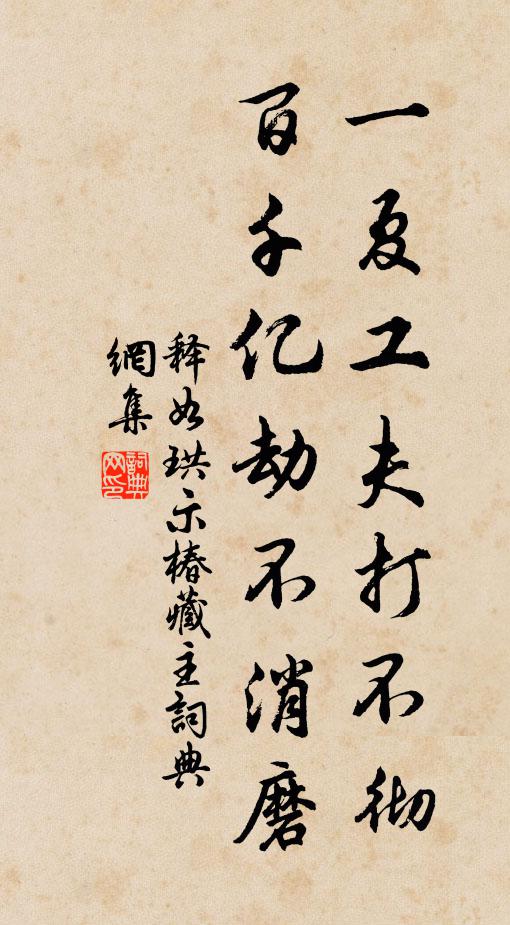 一夏工夫打不彻
百千亿劫不消磨
释如珙示椿藏主詞典
網集
詞典网印